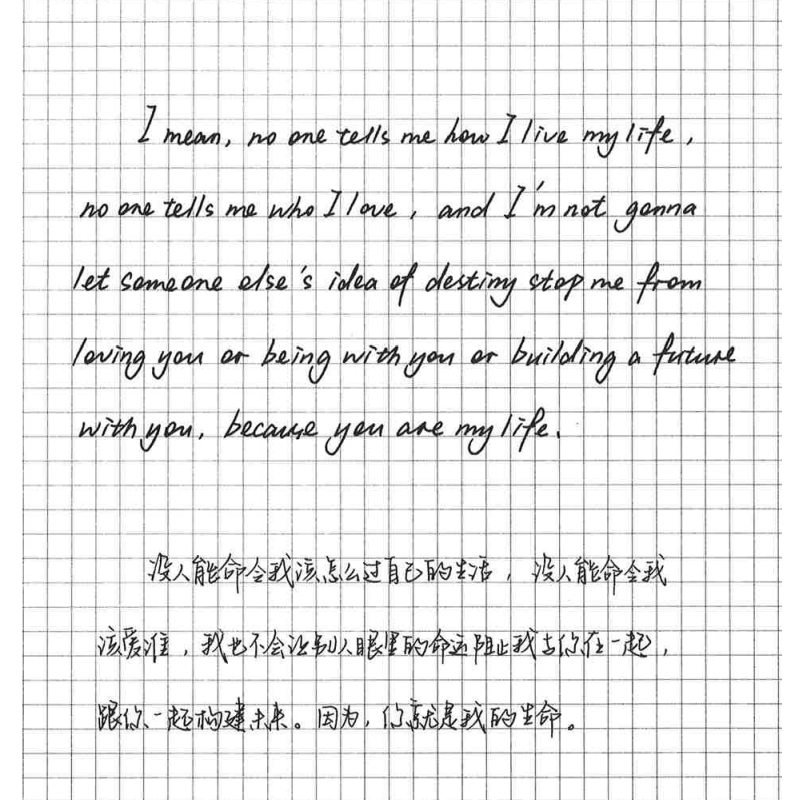 I mean, no one tells me how I live my life,
no one tells me who I love, and I'm not gonna
let someone else's idea of destiny stop me from
loving you or being with you or building a future
with you, because you are my life.
没人能命令我该怎么过自己的生活，没人能命令我
该爱谁，我也不会让别人眼里的命运阻止我与你在一起，
跟你一起构建未来。因为，你就是我的生命。